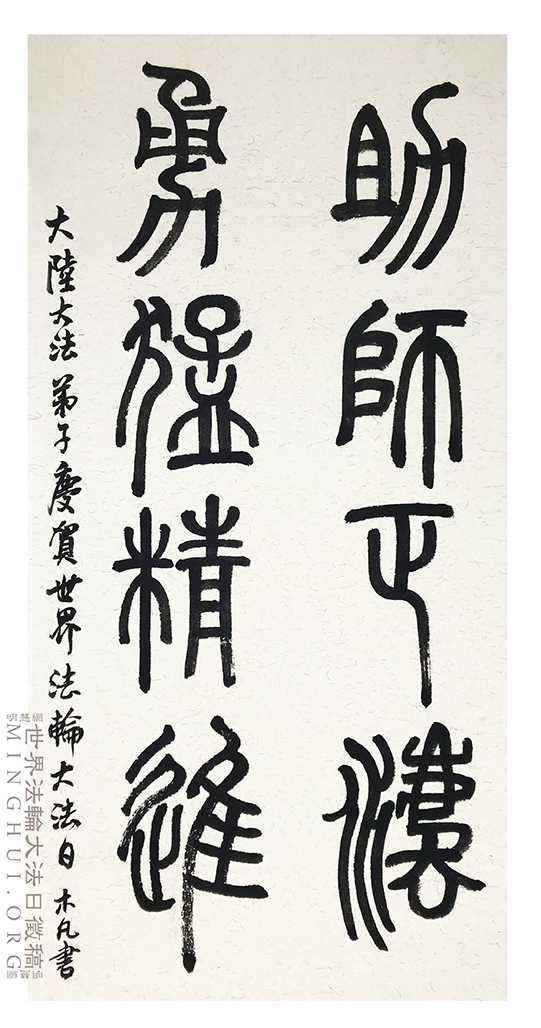 助師正法
勇猛精進
大陸大法弟子慶賀世界法輪大法日 木凡書
明慧網
世界法輪大法日徵稿
MINGHUI.ORG
明慧網